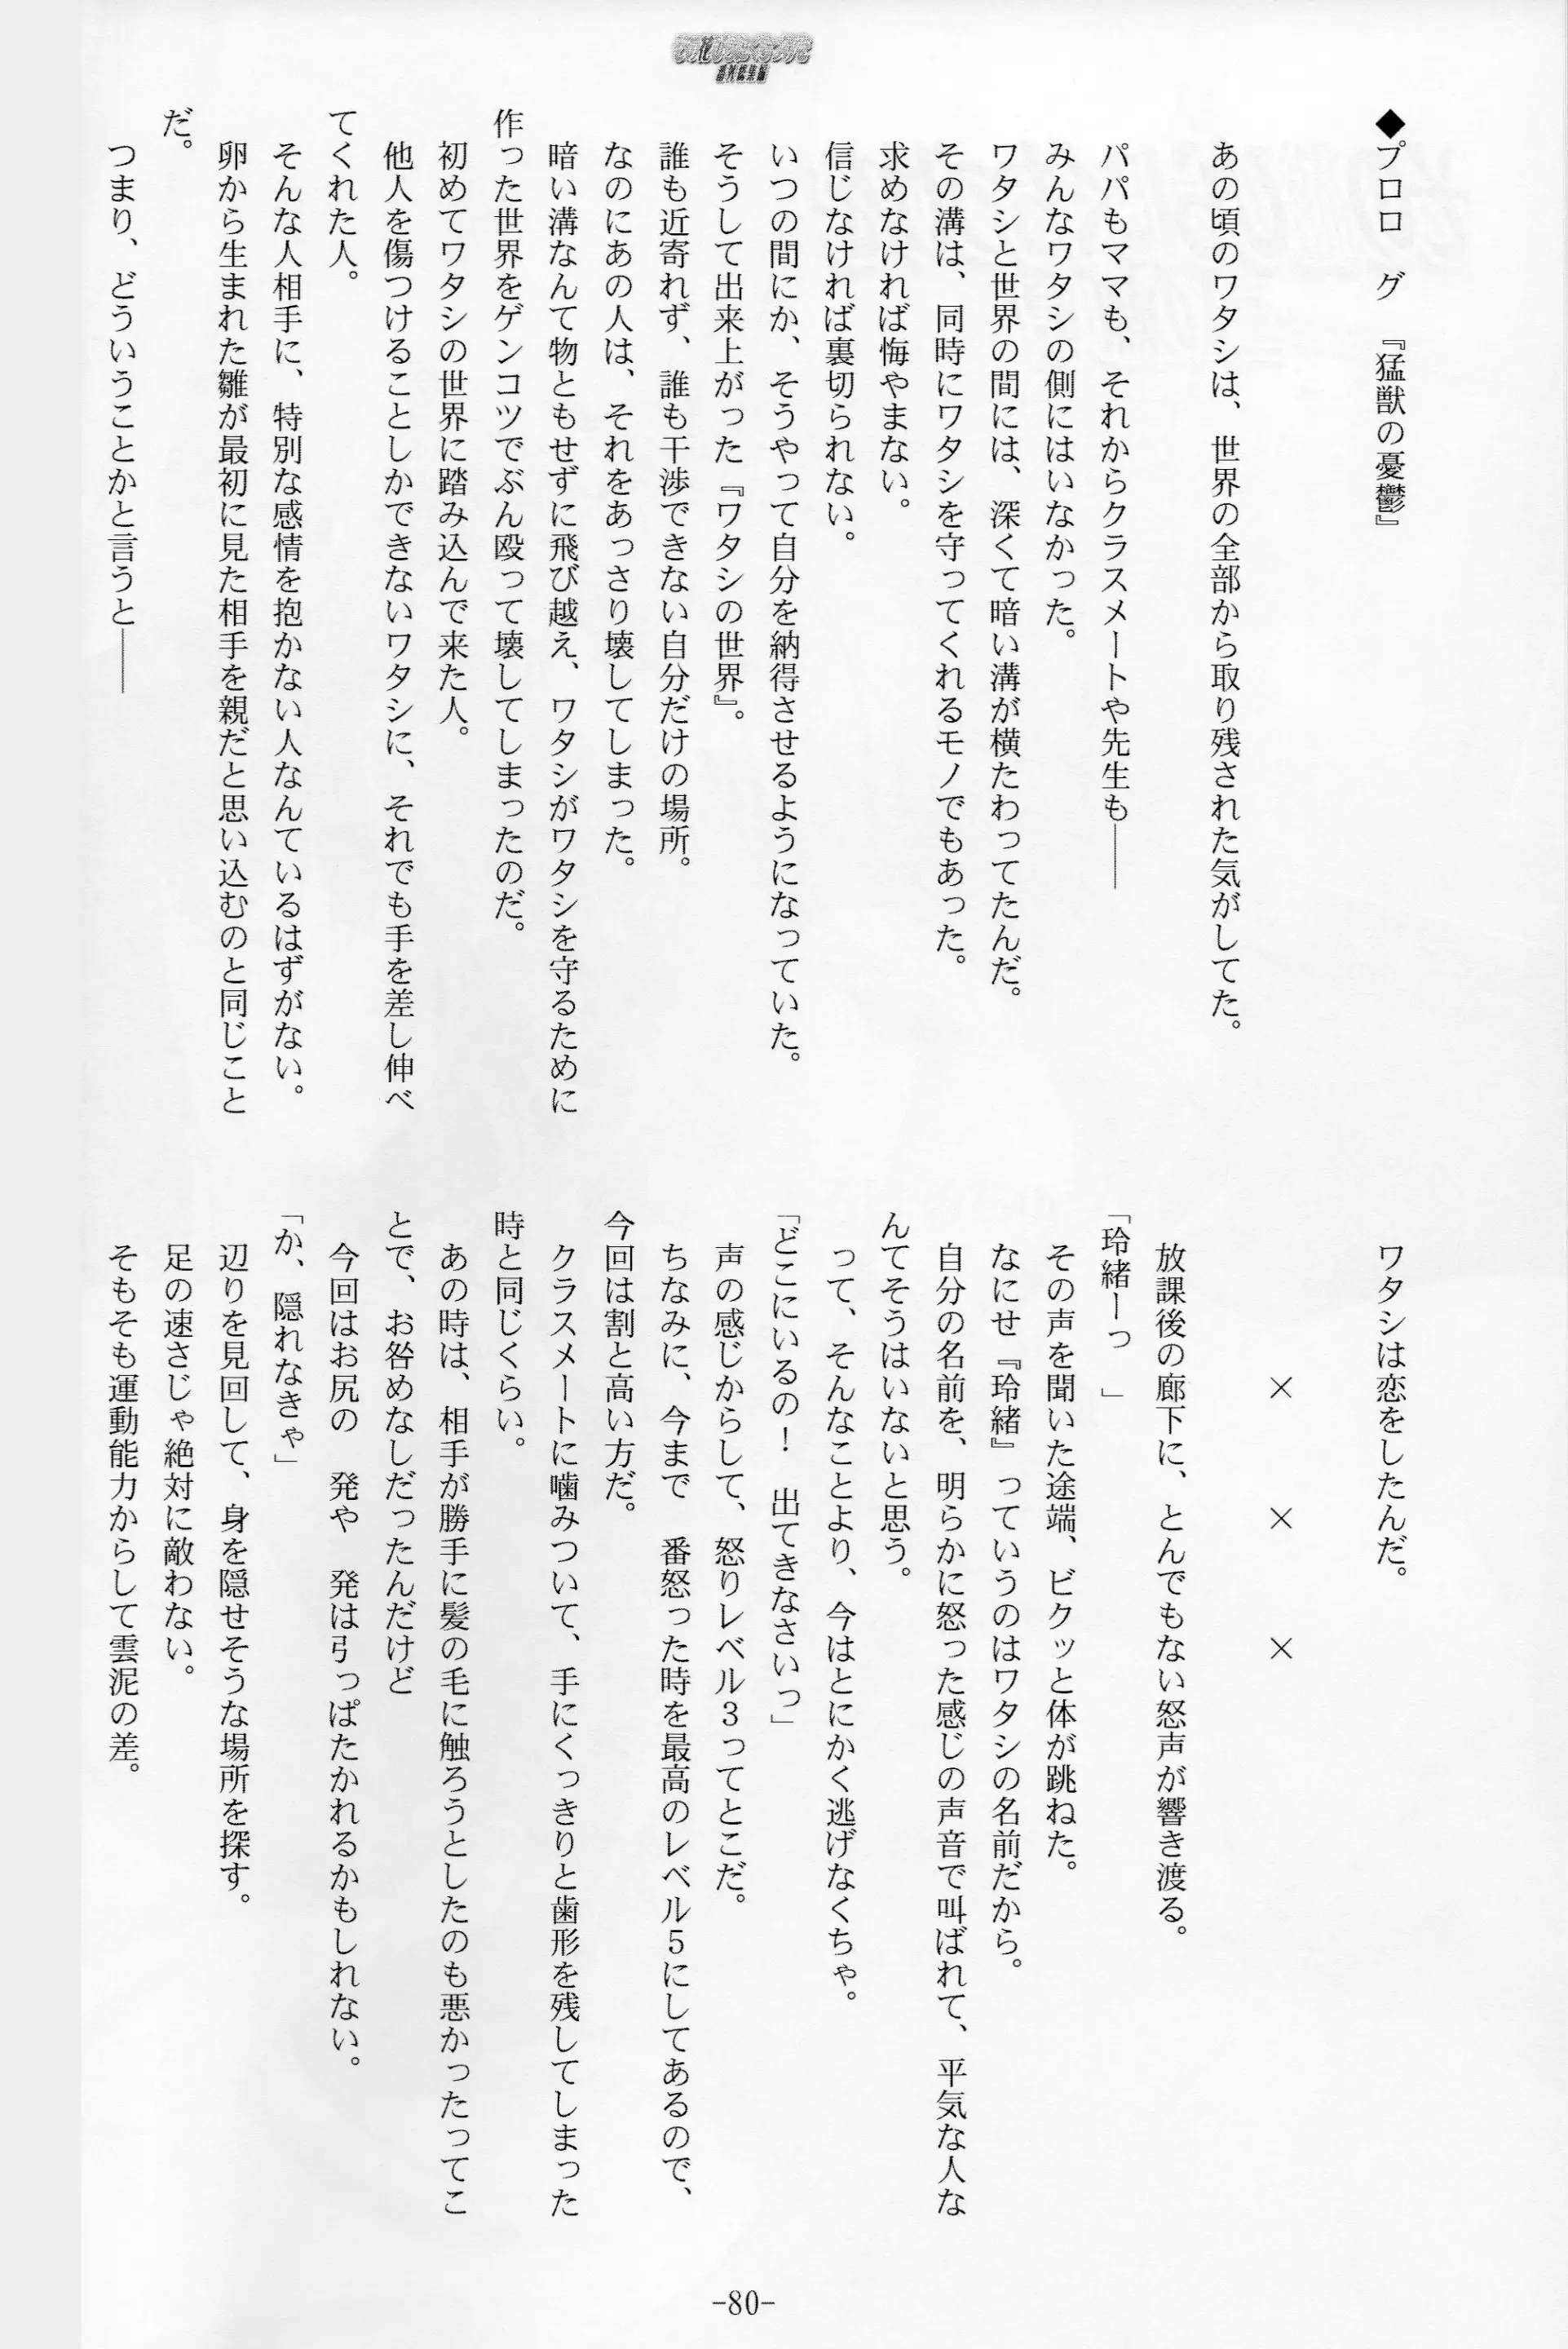 ◆プロロ　グ　『猛獣の憂鬱』
あの頃のワタシは、世界の全部から取り残された気がしてた。
パパもママも、それからクラスメートや先生も――
みんなワタシの側にはいなかった。
ワタシと世界の間には、深くて暗い溝が横たわってたんだ。
その溝は、同時にワタシを守ってくれるモノでもあった。
求めなければ悔やまない。
信じなければ裏切られない。
いつの間にか、そうやって自分を納得させるようになっていた。
そうして出来上がった『ワタシの世界』。
誰も近寄れず、誰も干渉できない自分だけの場所。
なのにあの人は、それをあっさり壊してしまった。
暗い溝なんて物ともせずに飛び越え、ワタシがワタシを守るために
作った世界をゲンコツでぶん殴って壊してしまったのだ。
初めてワタシの世界に踏み込んで来た人。
他人を傷つけることしかできないワタシに、それでも手を差し伸べ
てくれた人。
そんな人相手に、特別な感情を抱かない人なんているはずがない。
卵から生まれた雛が最初に見た相手を親だと思い込むのと同じこと
だ。
つまり、どういうことかと言うと――
ワタシは恋をしたんだ。
×　　×　　×
放課後の廊下に、とんでもない怒声が響き渡る。
「玲緒ーっ　」
その声を聞いた途端、ビクッと体が跳ねた。
なにせ『玲緒』っていうのはワタシの名前だから。
自分の名前を、明らかに怒った感じの声音で叫ばれて、平気な人な
んてそうはいないと思う。
って、そんなことより、今はとにかく逃げなくちゃ。
「どこにいるの！　出てきなさいっ」
声の感じからして、怒りレベル３ってとこだ。
ちなみに、今まで　番怒った時を最高のレベル５にしてあるので、
今回は割と高い方だ。
クラスメートに噛みついて、手にくっきりと歯形を残してしまった
時と同じくらい。
あの時は、相手が勝手に髪の毛に触ろうとしたのも悪かったってこ
とで、お咎めなしだったんだけど
今回はお尻の　発や　発は引っぱたかれるかもしれない。
「か、隠れなきゃ」
辺りを見回して、身を隠せそうな場所を探す。
足の速さじゃ絶対に敵わない。
そもそも運動能力からして雲泥の差。
-80-